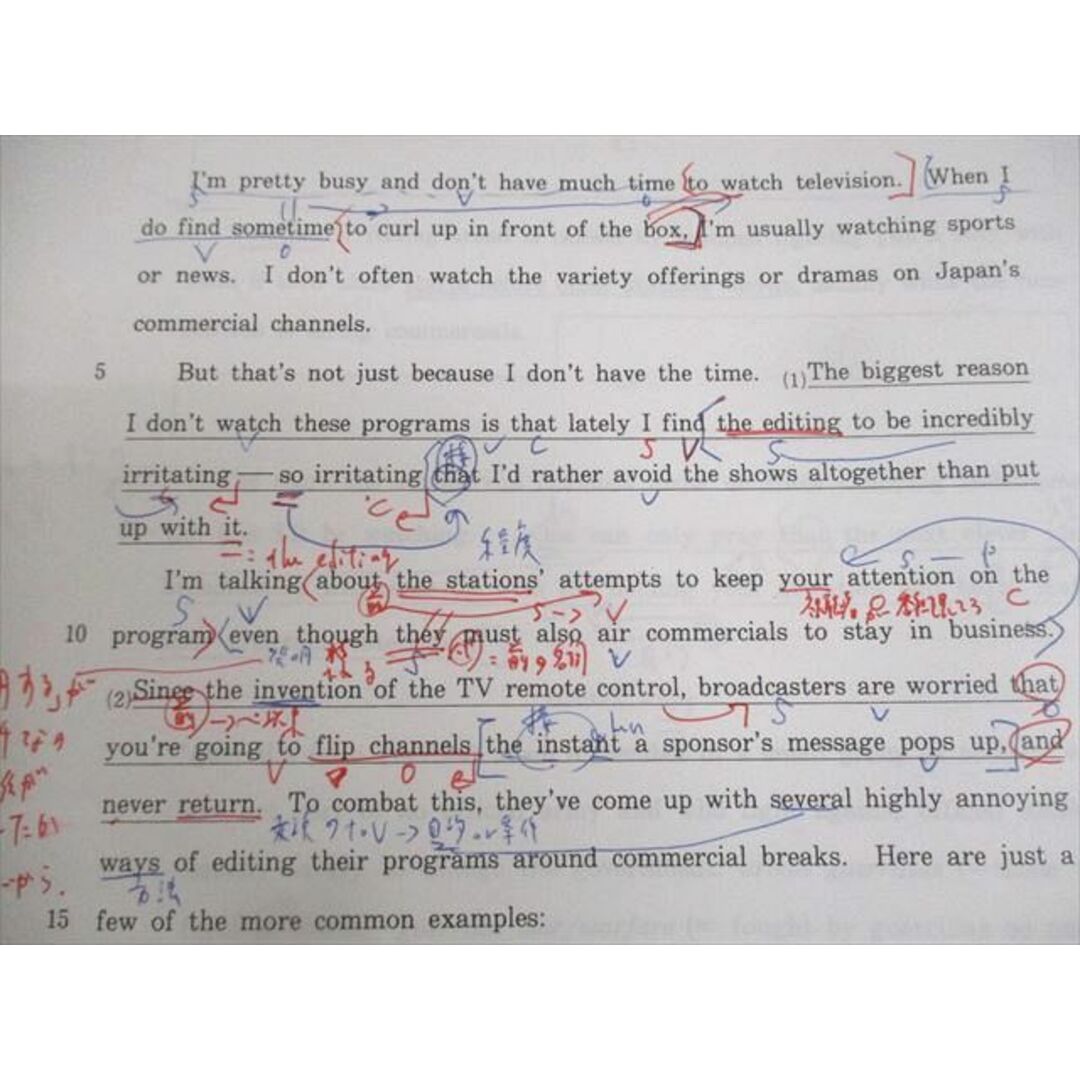 I'm pretty busy and don't have much time to watch television. When I
S V O S
do find sometime to curl up in front of the box, I'm usually watching sports
V O
or news. I don't often watch the variety offerings or dramas on Japan's
commercial channels.
5 But that's not just because I don't have the time. (1)The biggest reason
I don't watch these programs is that lately I find the editing to be incredibly
V V C S V S
irritating — so irritating that I'd rather avoid the shows altogether than put
接
C V
up with it.
= : the editing 程度
I'm talking about the stations' attempts to keep your attention on the
S V 前 S→ V S — P C
10 program even though they must also air commercials to stay in business.
S = 前の名詞 V
(2)Since the invention of the TV remote control, broadcasters are worried that
前 接 S V O
you're going to flip channels the instant a sponsor's message pops up, and
V O V
never return. To combat this, they've come up with several highly annoying
文頭 → 目的 or 条件
ways of editing their programs around commercial breaks. Here are just a
方法
15 few of the more common examples: